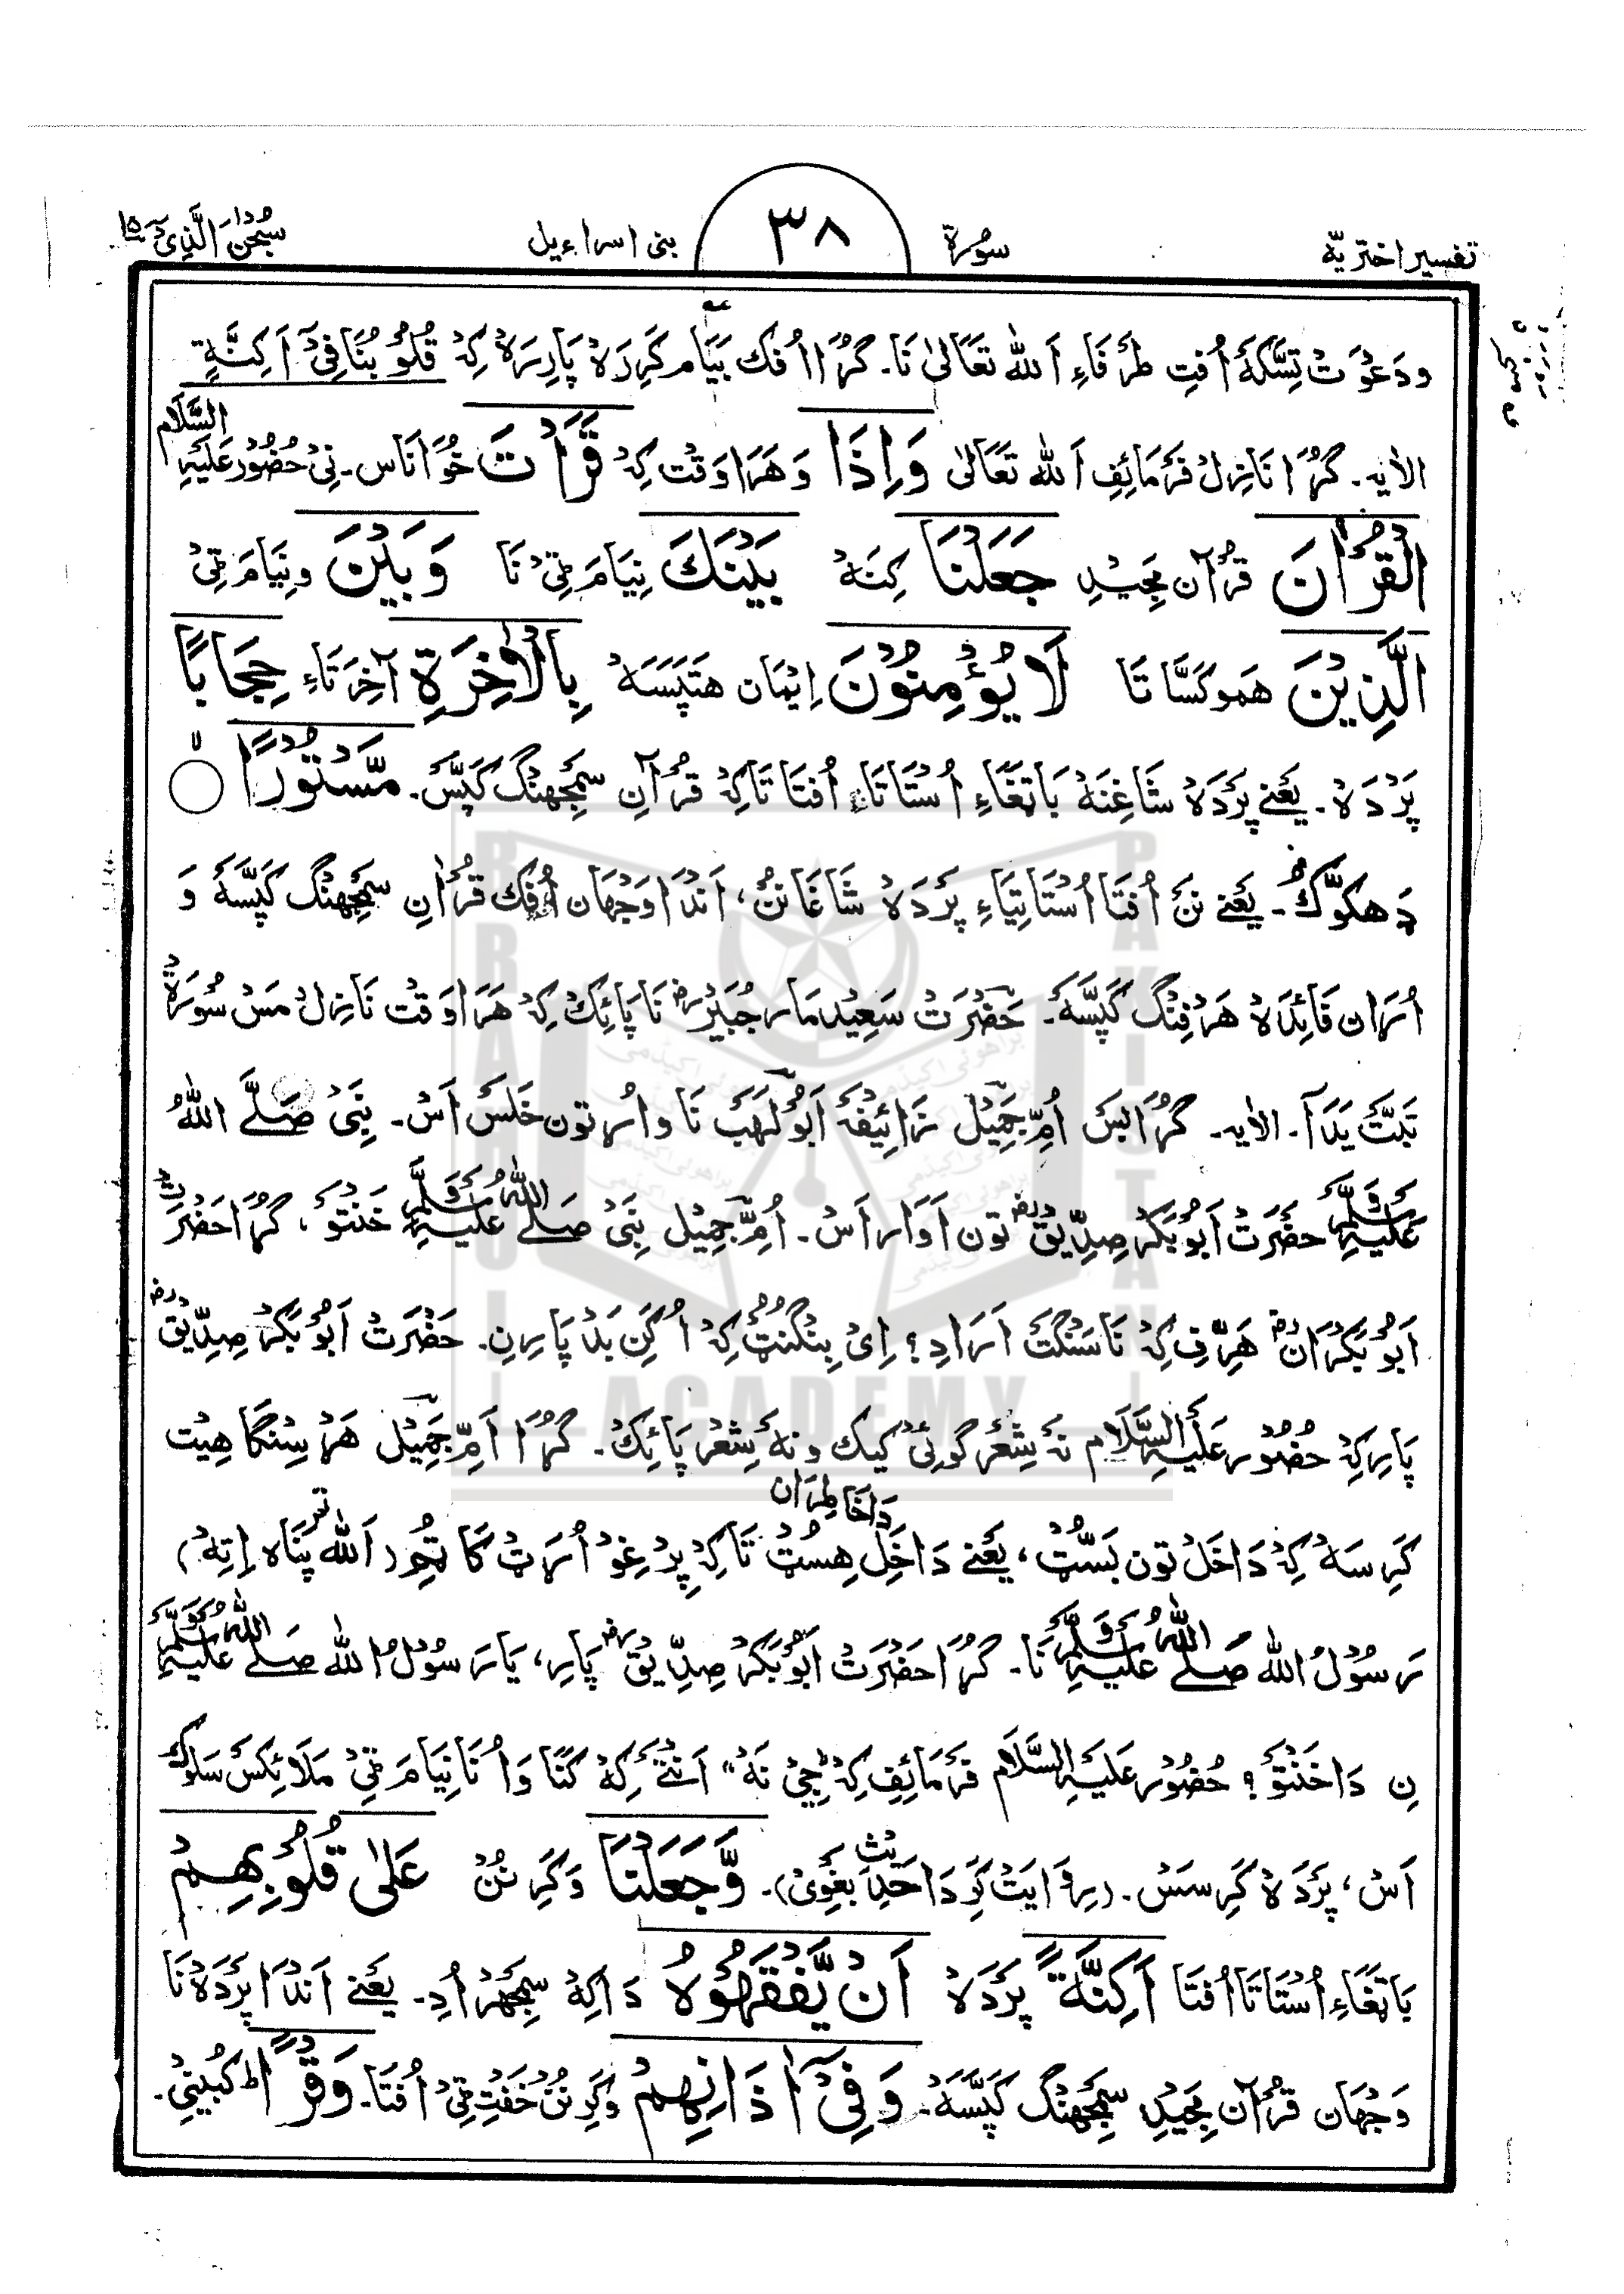 تفسیر اختریّه سُورۃ ٣٨ بنی اسراءیل سُبحٰن الَّذِیْ ١٥
ودَعوَت تِسَّکہَ اُفتِ طرَفَاءِ اَللہ تعَالیٰ نَا۔ گڑا اُفک بَیَام کَرِدَہ پَارِرَہ کِہ قُلُوْبُنَا فِیْٓ اَکِنَّۃٍ
الاٰیہ۔ گڑا نَازِل فَرمَائِفِ اَللہ تعَالیٰ وَاِذَا وَهَرَا وَقت کِہ قَرَاْتَ خُوَانَاس۔ نِیْ حُضُور عَلَیْہِ السَّلَام
الْقُرْاٰنَ قُرآن مَجِیدِ جَعَلْنَا کِنَہ بَیْنَكَ نِیَام ٹِیْ نَا وَبَیْنَ ونِیَام ٹِیْ
الَّذِیْنَ هَمو کَسَّاتَا لَا یُؤْمِنُوْنَ اِیْمَان هَتَپَسَہ بِالْاٰخِرَۃِ آخِرَتَاءِ حِجَابًا
پَرْدَہ۔ یَعنے پَردَہ شَاغِنَہ بَاتِغَاءِ اُسْتَاتَا اُفتَا تَاکِہ قُرآنِ سَمِجھِنگ کَپَّس۔ مَّسْتُوْرًا ○
ڈَھکوَّکُ۔ یَعنے نَن اُفتَا اُسْتَاتِیَاءِ پَردَہ شَاغَانُن، اَندَا وَجہَان اُفک قُرآنِ سَمِجھِنگ کَپَّسَہ وَ
اُرَان فَائِدَہ هَرفِنگ کَپَّسَہ۔ حَضْرَت سَعِیْد مَار جُبَیْر نَا پَائِک کِہ هَرَا وَقت نَازِل مَسْ سُورَۃ
تَبَّتْ یَدَآ۔ الاٰیہ۔ گڑا بَس اُمِّ جَمِیْل زَائِیفَہ اَبُوْلَہَب نَا و اُرتون خَلَس اَس۔ نَبِیْ صَلَّے اللہُ
عَلَیْہِ وَسَلَّم حَضرَت اَبُوْبَکْر صِدِّیق تون اَوَار اَس۔ اُمِّ جَمِیْل نَبِیْ صَلَے اللہُ عَلَیْہِ وَسَلَّم خَنتَوْ، گڑا حَضْرَت
اَبُوْبَکْرَان هَرِّف کِہ نَا سَنگت اَرَادِ؟ اِیْ بِنگنُٹ کِہ اُ کَنِ بَد پَارِن۔ حَضْرَت اَبُوْبَکْر صِدِّیق
پَارِ کِہ حُضُور عَلَیْہِ السَّلَام نَہ شِعْر گوئِیْ کیک ونَہ شِعْر پَائِک۔ گڑا اُمِّ جَمِیْل هَرسِنگا هِیت
کَرِسَہ کِہ دَا خَل تون بَسُّٹ، یَعنے دَا خَلِ هِسُٹ تَاکِہ پِرغِوْ اُرَٹ کَاٹُمِ (اَللہ پَنَاہ اِتِہ) دَا خَاطِرَان
رَسُوْلُ اللہ صَلَے اللہُ عَلَیْہِ وَسَلَّم نَا۔ گڑا حَضرَت اَبُوْبَکْر صِدِّیق پَارِ، یَا رَسُوْلُ اللہ صَلَے اللہُ عَلَیْہِ وَسَلَّم
نِ دَا خَنتَوْ؟ حُضُور عَلَیْہِ السَّلَام فَرمَائِف کِہ جِیْ نَہ" اَنتَے کِہ کَنَا وَاُنَا نِیَام ٹِیْ مَلَائِکس سَلوک
اَس، پَردَہ کَرِسَس۔ (رِوَایَت کَرِ دَا حَدِیث بَغَوِیْ)۔ وَّجَعَلْنَا وَکَرِنُن عَلٰی قُلُوْبِهِمْ
بَاتِغَاءِ اُسْتَاتَا اُفتَا اَکِنَّۃً پَردَہ اَنْ یَّفْقَهُوْهُ دَاکِہ سَمِجھَر اُدِ۔ یَعنے اَندَا پَردَہ نَا
وَجہَان قُرآن مَجِیدِ سَمِجھِنگ کَپَّسَہ۔ وَفِیْٓ اٰذَانِهِمْ وَکَرِنُن خَفتِ ٹِیْ اُفتَا۔ وَقْرًا ط کُبِینِیْ۔
BRAHUI ACADEMY PAKISTAN